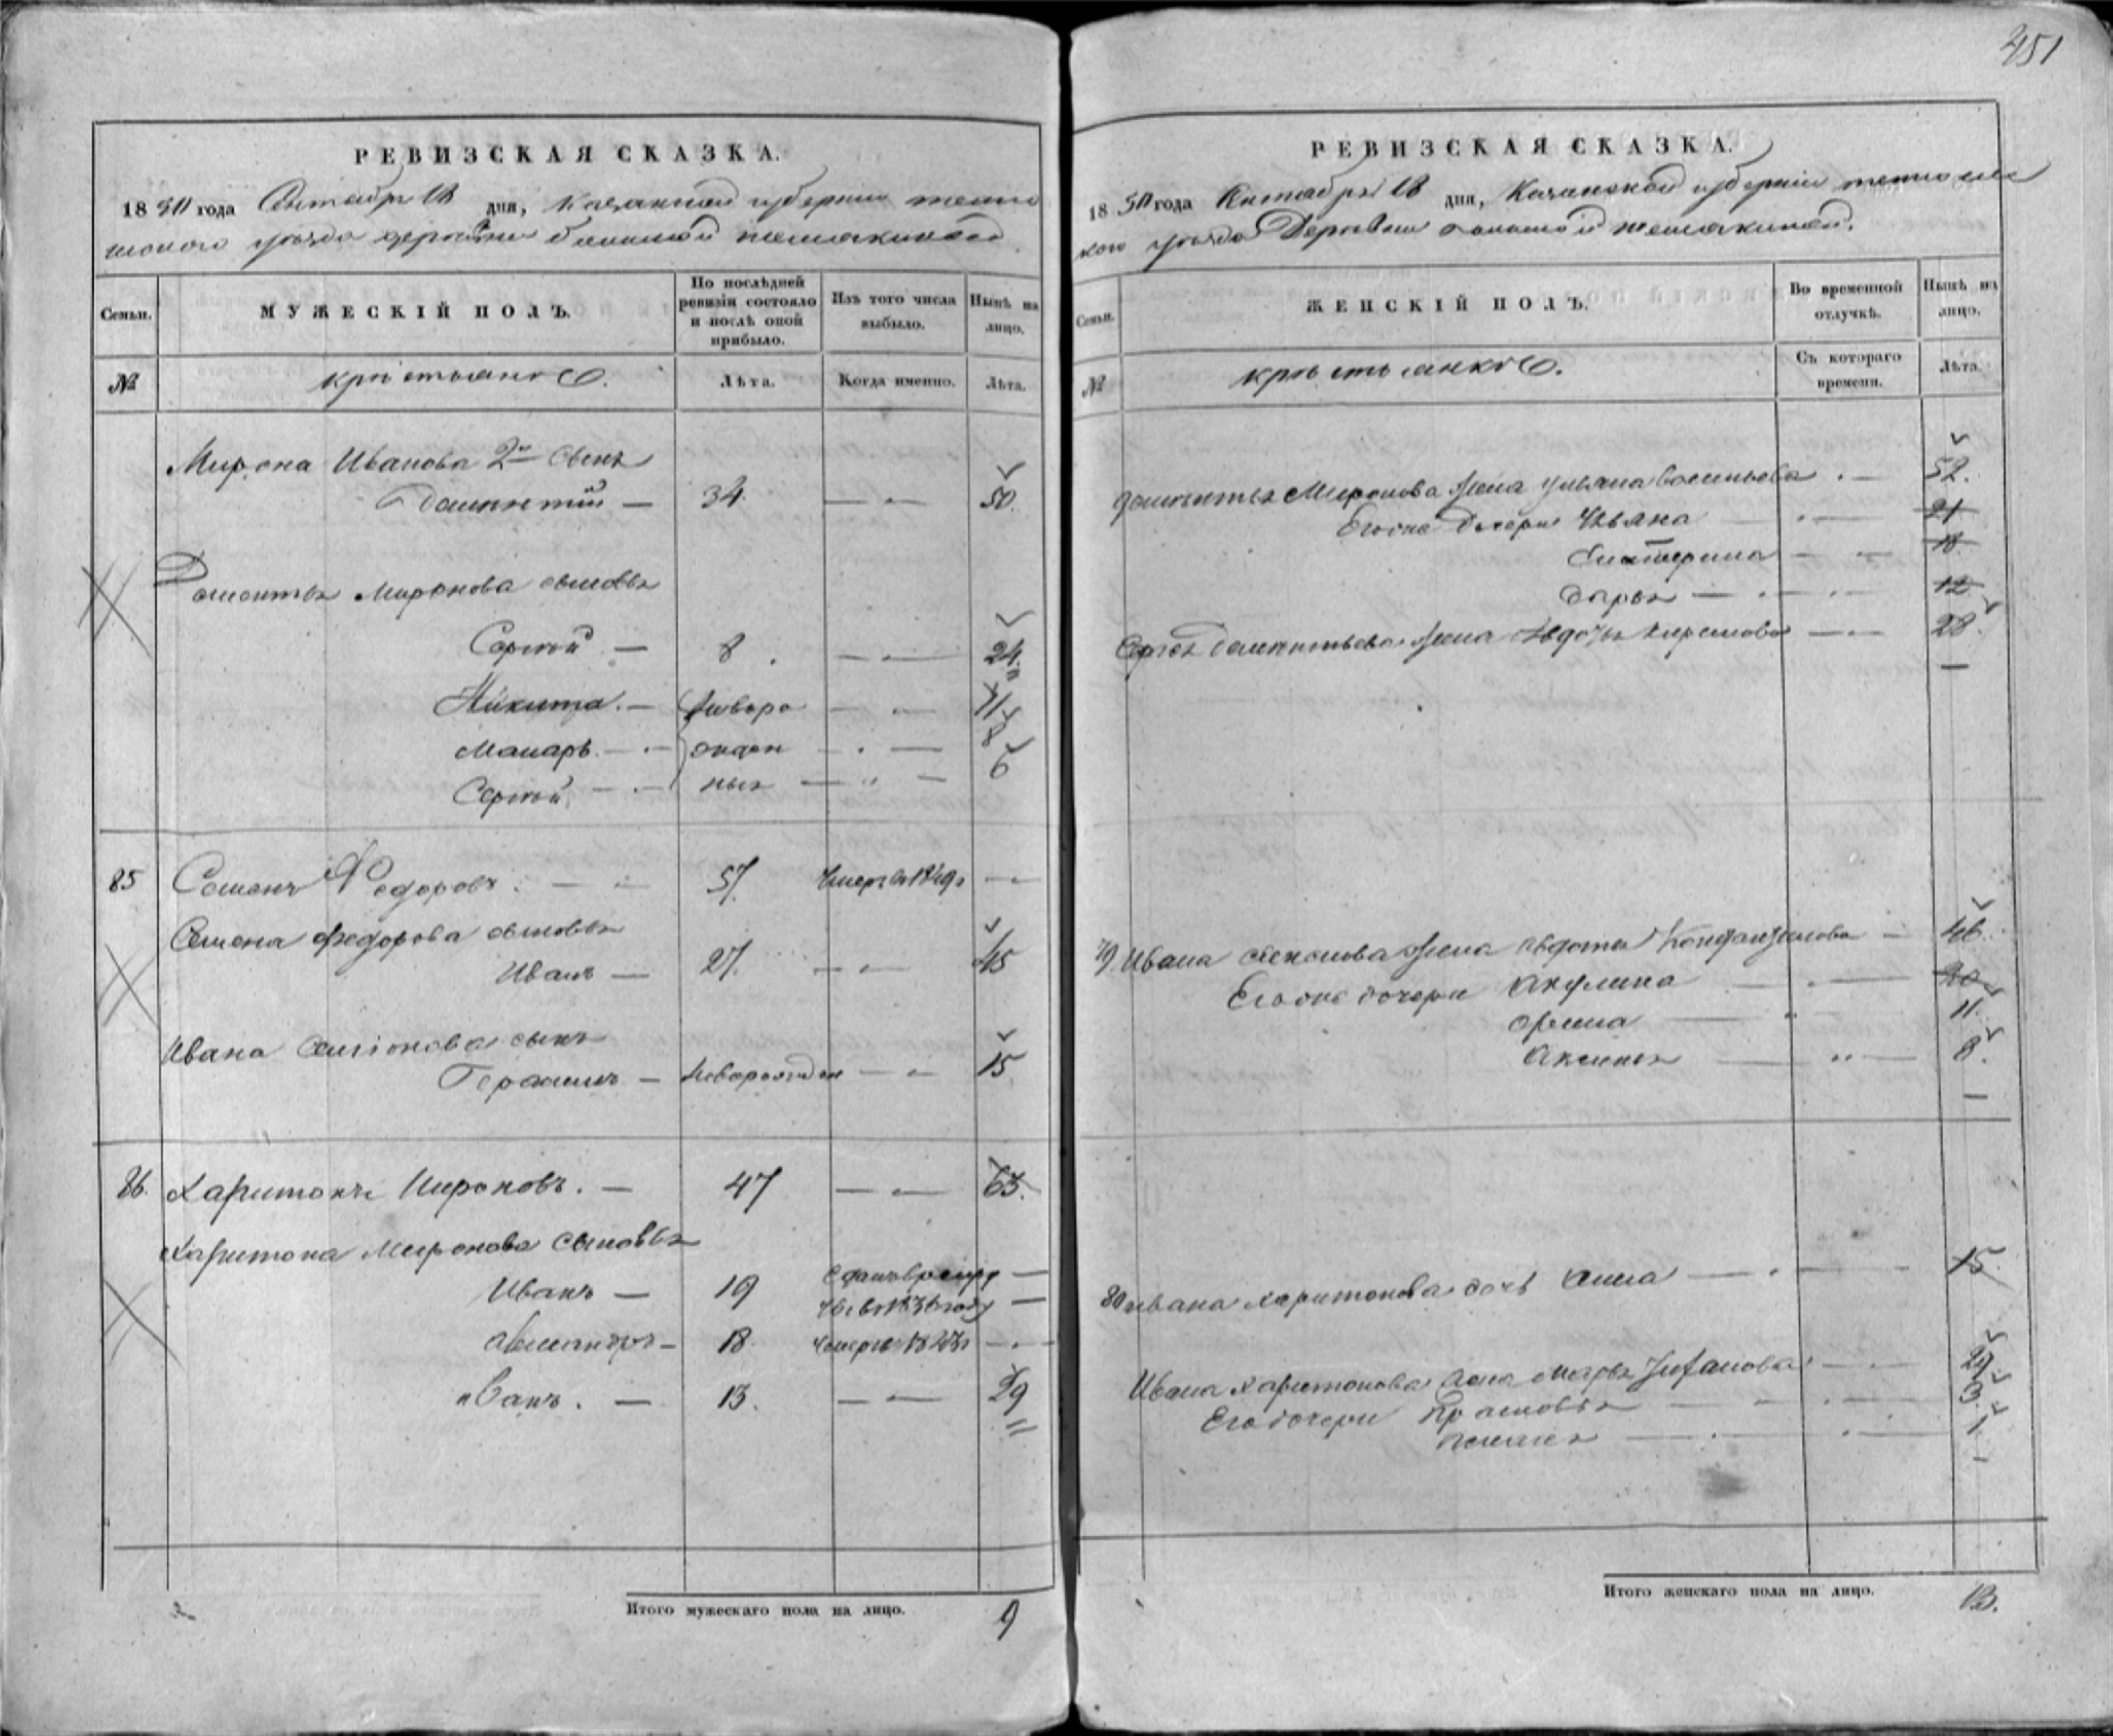 451
РЕВИЗСКАЯ СКАЗКА.
1850 года Сентября 18 дня, Казанской губерніи тетю
шского уѣзда деревни большой
Семьи.
МУЖЕСКІЙ ПОЛЪ.
По послѣдней ревизіи состояло и послѣ оной прибыло.
Изъ того числа выбыло.
Нынѣ на лицо.
№
крестьянѣ
Лѣта.
Когда именно.
Лѣта.
Мирона Иванова 2й Сынъ
34. 50.
Миронова сыновья
Сергѣй — 8. 24.
Никита. — Новоро 11
Макаръ — жден 8
Сергѣй — ныя 6
85 Семенъ Федоровъ. 57. Умеръ въ 1849
Семена Федорова сыновья
Иванъ — 27. 45
Ивана Семіонова сынъ
Герасимъ — Новорожден 15
86. Харитонъ Мироновъ. — 47 63.
Харитона Миронова сыновья
Иванъ — 19 въ 1836 году
18. Умеръ
Иванъ. — 13. 29
Итого мужескаго пола на лицо. 9
РЕВИЗСКАЯ СКАЗКА.
1850 года Сентября 18 дня, Казанской губерніи тетюшс
кого уѣзда Деревни большой
Семьи.
ЖЕНСКІЙ ПОЛЪ.
Во временной отлучкѣ.
Нынѣ на лицо.
№
крестьянкѣ
Съ котораго времени.
Лѣта.
Миронова жена Ульяна Васильева 52.
Егоже дочери Ульяна 21
Екатерина 18
Дарья 12
Сергѣя жена Авдотья 28
79. Ивана Семенова жена Авдотья 46.
Егоже дочери Акулина 20
Орина 11.
Аксинья 8.
80 Ивана Харитонова дочь Анна 15
Ивана Харитонова жена Марья 29
Его дочери Прасковья 3.
1
Итого женскаго пола на лицо. 13.